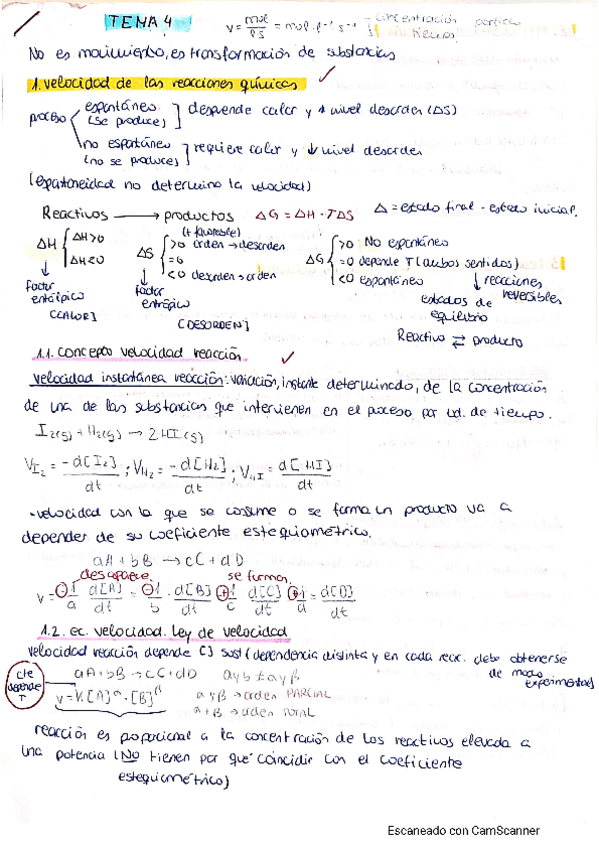 TEMA 4
v = mol/l·s = mol·l⁻¹·s⁻¹
concentración
tiempo
No es movimiento, es transformación de sustancias
1. velocidad de las reacciones químicas
proceso
espontáneo (se produce) ] desprende calor y ↑ nivel desorden (ΔS)
no espontáneo (no se produce) ] requiere calor y ↓ nivel desorden
(espontaneidad no determina la velocidad)
Reactivos → productos ΔG = ΔH - TΔS Δ = estado final - estado inicial.
(+ favorable)
ΔH { ΔH>0 ΔH<0
ΔS { >0 orden → desorden =0 <0 desorden → orden
ΔG { >0 No espontáneo =0 depende T (ambos sentidos) <0 espontáneo
factor entálpico [CALOR]
factor entrópico [DESORDEN]
estados de equilibrio
reacciones reversibles
Reactivo ⇄ producto
1.1. concepto velocidad reacción
velocidad instantánea reacción: variación, instante determinado, de la concentración
de una de las substancias que intervienen en el proceso por ud. de tiempo.
I₂(g) + H₂(g) → 2HI(g)
V I₂ = -d[I₂]/dt ; V H₂ = -d[H₂]/dt ; V HI = d[HI]/dt
- velocidad con la que se consume o se forma un producto va a
depender de su coeficiente estequiométrico.
aA + bB → cC + dD
desaparece. se forman.
v = -1/a d[A]/dt = -1/b · d[B]/dt + 1/c d[C]/dt + 1/d = d[D]/dt
1.2. ec. velocidad. Ley de velocidad
velocidad reacción depende [] sust (dependencia distinta y en cada reacc. debe obtenerse
de modo experimental)
cte depende T
aA + bB → cC + dD a y b ≠ α y β
v = K·[A]^α·[B]^β α y β → orden PARCIAL
α + β → orden TOTAL
reacción es proporcional a la concentración de los reactivos elevada a
una potencia (NO tienen por qué coincidir con el coeficiente
estequiométrico)
Escaneado con CamScanner